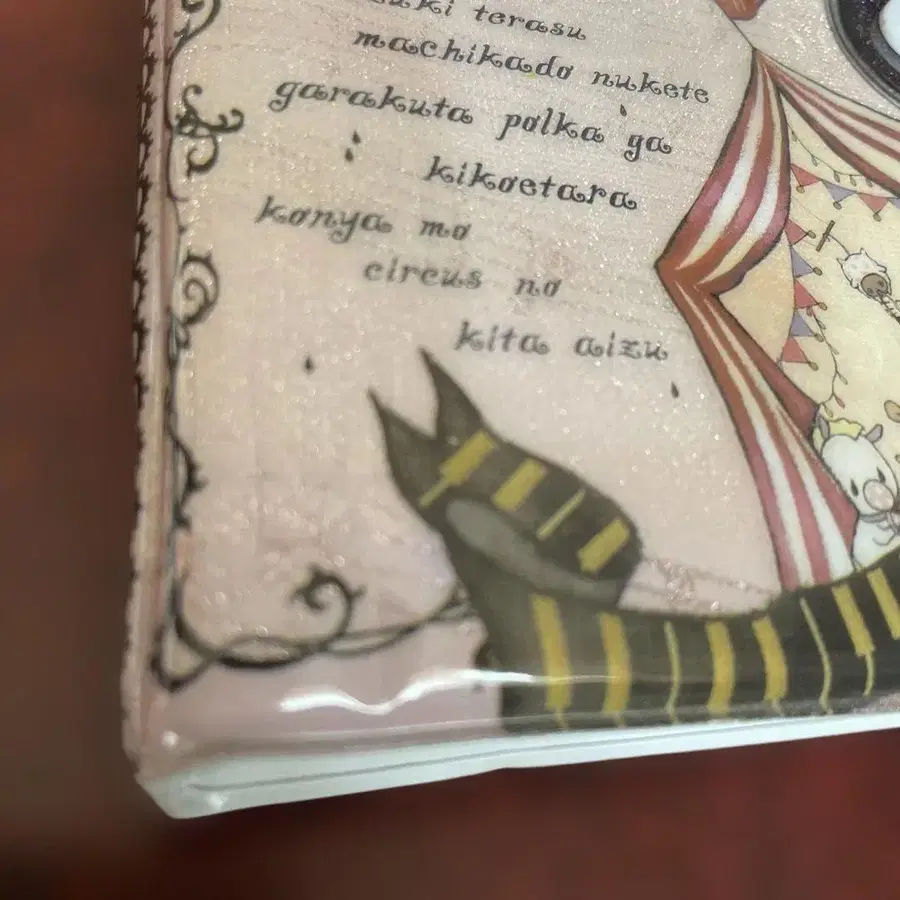 terasu
machikado nukete
garakuta polka ga
kikoetara
konya mo
circus no
kita aizu